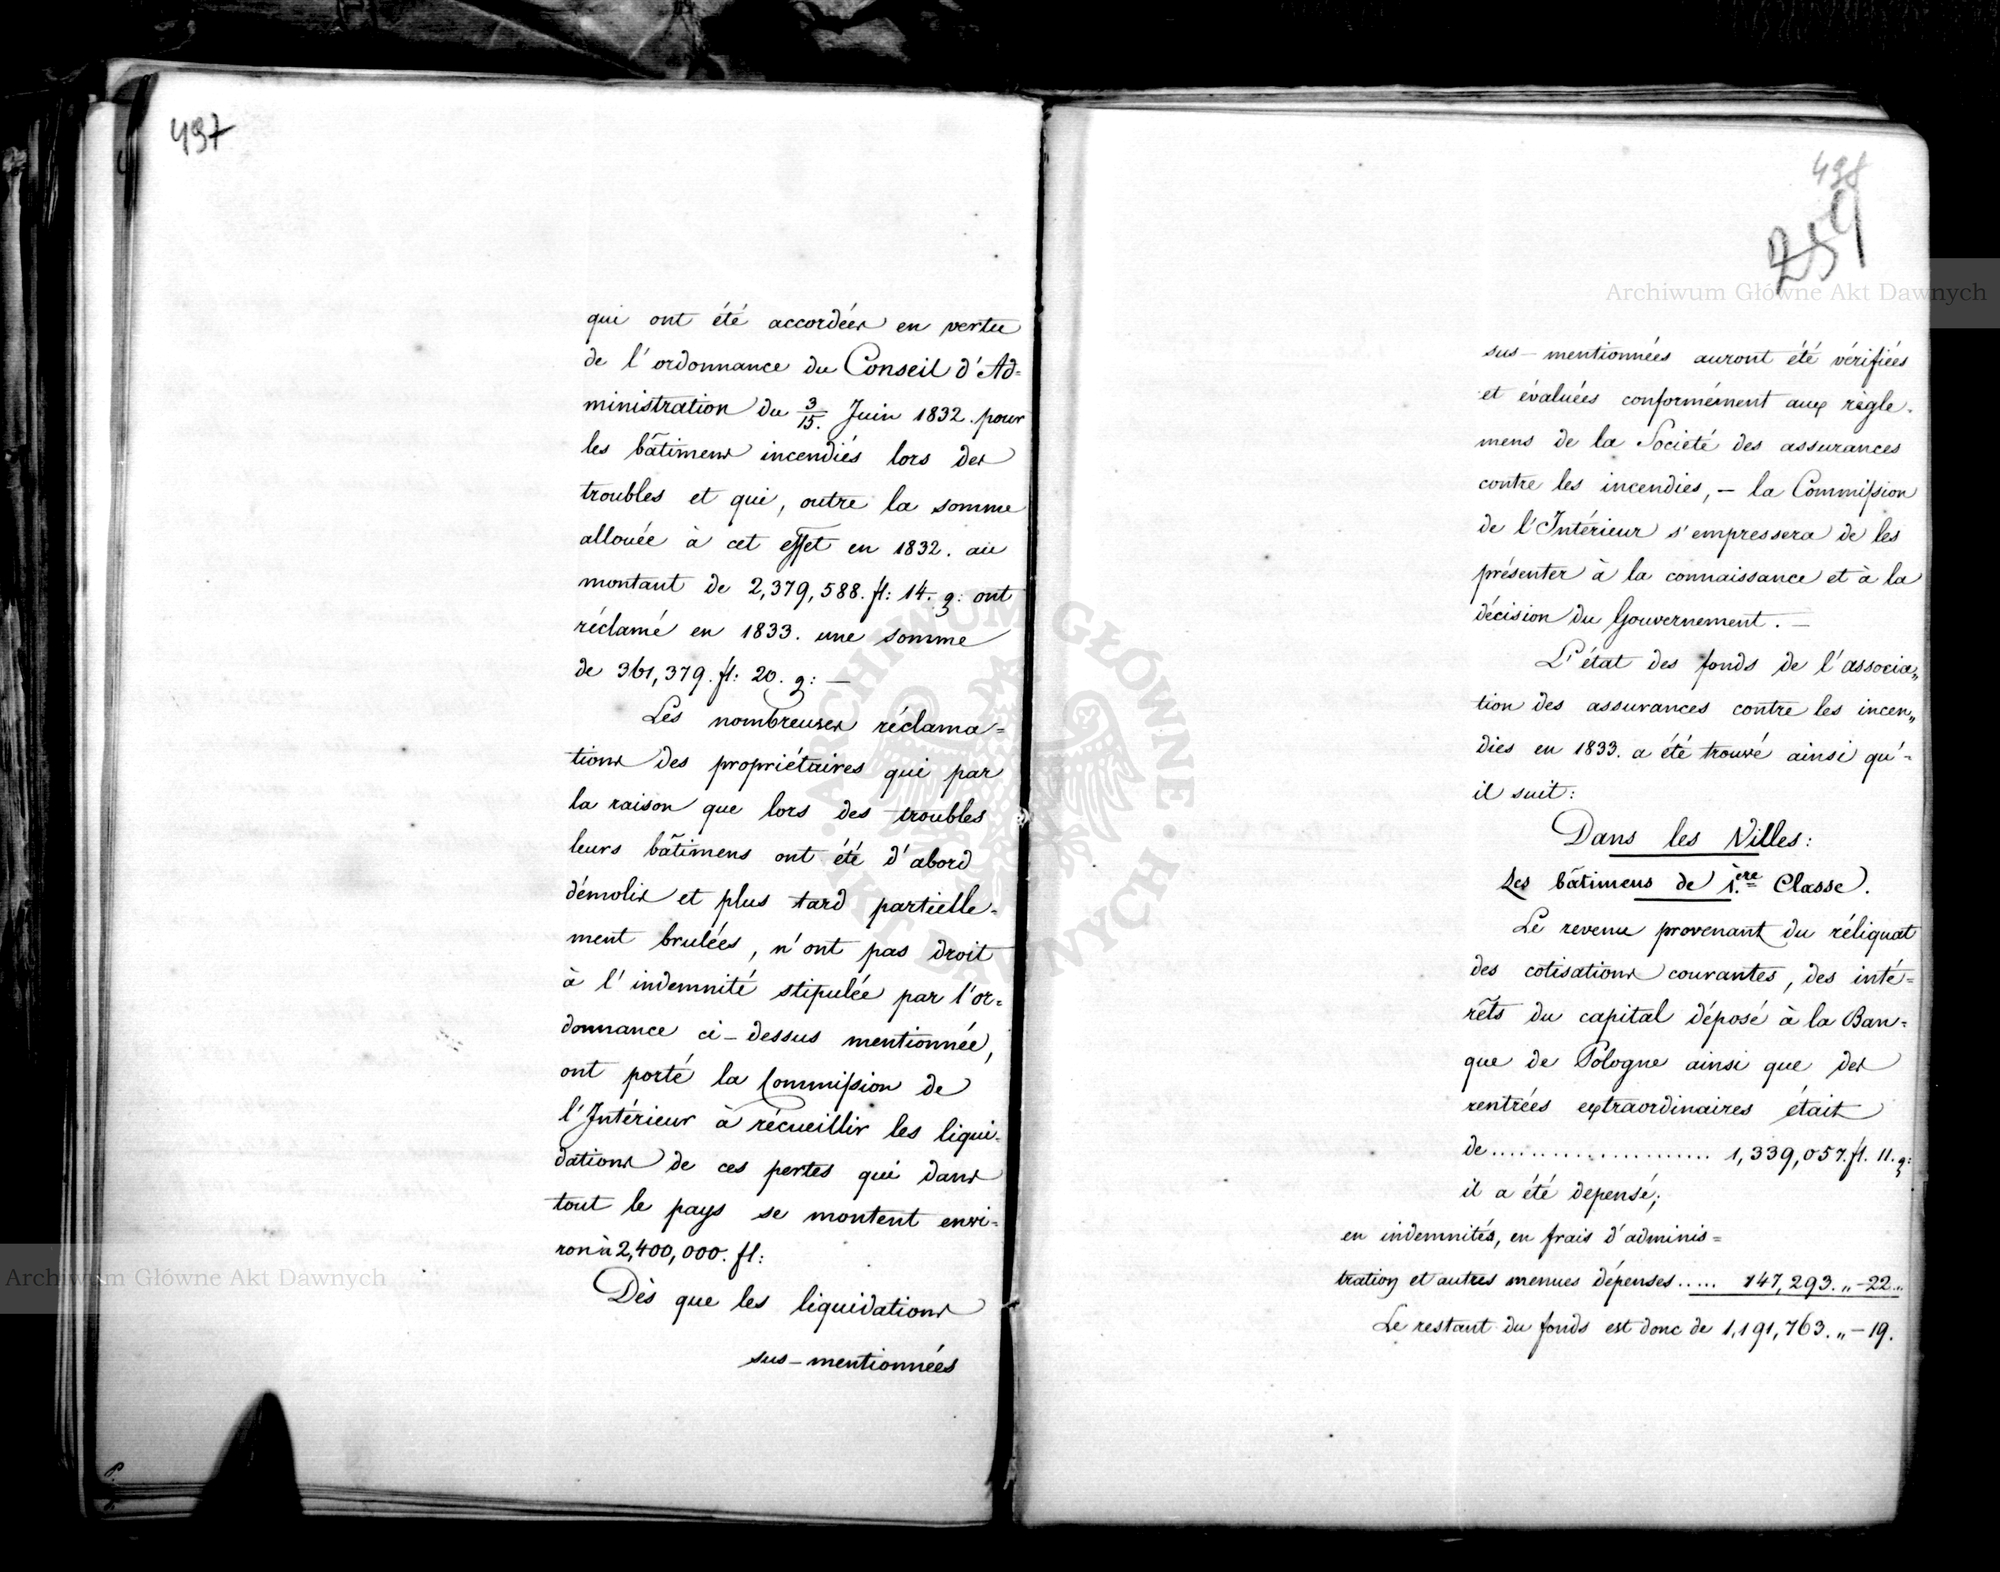 497
qui ont été accordées en vertu
de l'ordonnance du Conseil d'Ad=
ministration du 3/15. Juin 1832. pour
les bâtimens incendiés lors des
troubles et qui, outre la somme
allouée à cet effet en 1832. au
montant de 2,379,588. fl: 14. g: ont
réclamé en 1833. une somme
de 361,379. fl: 20. g: —
Les nombreuses réclama=
tions des propriétaires qui par
la raison que lors des troubles
leurs bâtimens ont été d'abord
démolis et plus tard partielle=
ment brulées, n'ont pas droit
à l'indemnité stipulée par l'or=
donnance ci-dessus mentionnée,
ont porté la Commission de
l'Intérieur à récueillir les liqui=
dations de ces pertes qui dans
tout le pays se montent envi=
ron à 2,400,000. fl:
Dès que les liquidations
sus-mentionnées
498
259
sus-mentionnées auront été vérifiées
et évaluées conformément aux règle-
mens de la Societé des assurances
contre les incendies, — la Commission
de l'Intérieur s'empressera de les
présenter à la connaissance et à la
décision du Gouvernement. —
L'état des fonds de l'associa„
tion des assurances contre les incen„
dies en 1833. a été trouvé ainsi qu'-
il suit:
Dans les Villes:
Les bâtimens de 1.ère Classe.
Le revenu provenant du réliquat
des cotisations courantes, des inté=
rêts du capital déposé à la Ban=
que de Pologne ainsi que des
rentrées extraordinaires était
de ..................... 1,339,057. fl. 11. g:
il a été depensé;
en indemnités, en frais d'adminis=
tration et autres menues dépenses ..... 147,293. „ -22. „
Le restant du fonds est donc de 1,191,763. „ - 19.
Archiwum Główne Akt Dawnych
Archiwum Główne Akt Dawnych
ARCHIWUM GŁÓWNE · AKT DAWNYCH ·